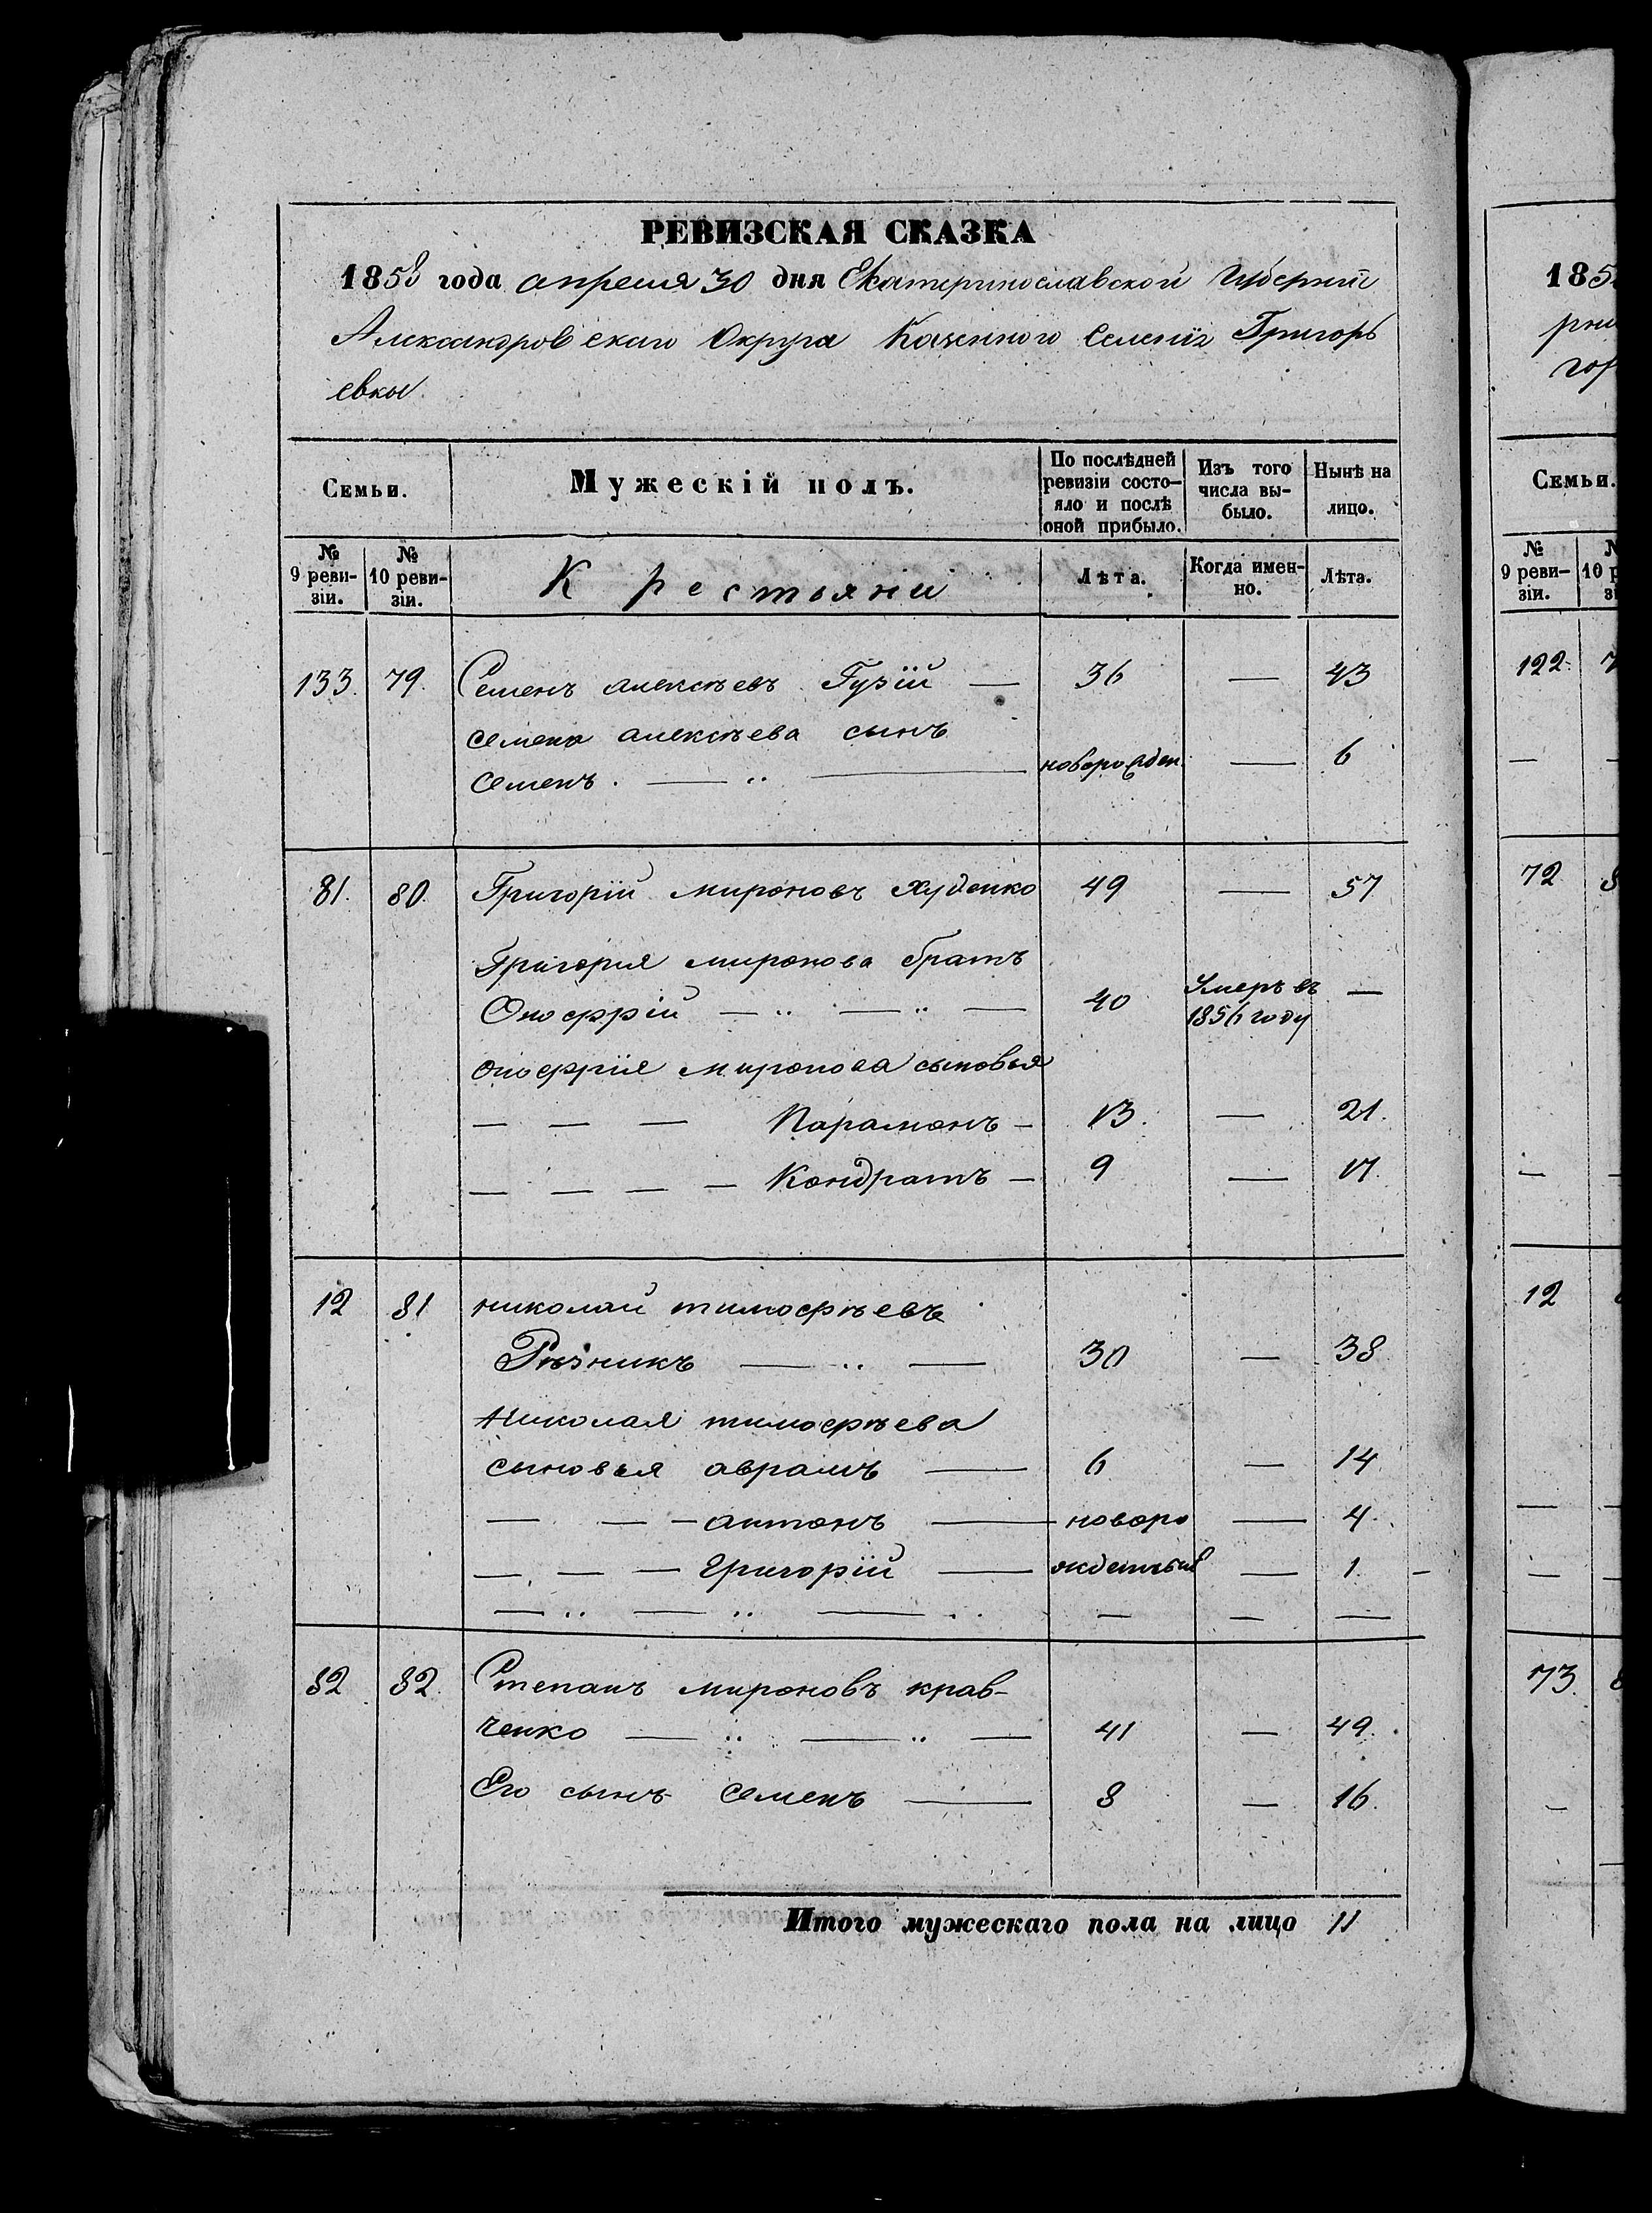 РЕВИЗСКАЯ СКАЗКА
1858 года апреля 30 дня Екатеринославской Губернїи
Александровскаго Округа Казенного Селенїя Григорь
евки
Семьи.
Мужескій полъ.
По послѣдней ревизіи состо-яло и послѣ оной прибыло.
Изъ того числа вы-было.
Нынѣ на лицо.
№ 9 реви-зіи.
№ 10 реви-зіи.
Крестьяни
Лѣта.
Когда имен-но.
Лѣта.
133. 79. Семенъ алексѣевъ Гузїй — 36 — 43
Семена алексѣева сынъ
Семенъ. — " — новорожден — 6
81. 80. Григорїй мироновъ Худенко 49 — 57
Григория миронова братъ
Оноефрїй — " — " — 40 Умеръ въ 1856 году —
оноефрїя миронова сыновья
— — — Парамонъ — 13. — 21.
— — — — Кондратъ — 9 — 17.
12 81 николай тимофѣевъ
Рѣзникъ — " — 30 — 38
Николая тимофѣева
сыновья аврамъ — 6 — 14
— — — антонъ — новоро — 4.
— — — Григорїй — жденныи — 1.
— " — " — " — — —
82. 82. Степанъ мироновъ крав-
ченко — " — " — 41 — 49.
Его сынъ Семенъ — 8 — 16.
Итого мужескаго пола на лицо 11
185
рни
гор
Семьи.
№ 9 реви-зіи.
122.
—
72
—
12
—
—
73.
—